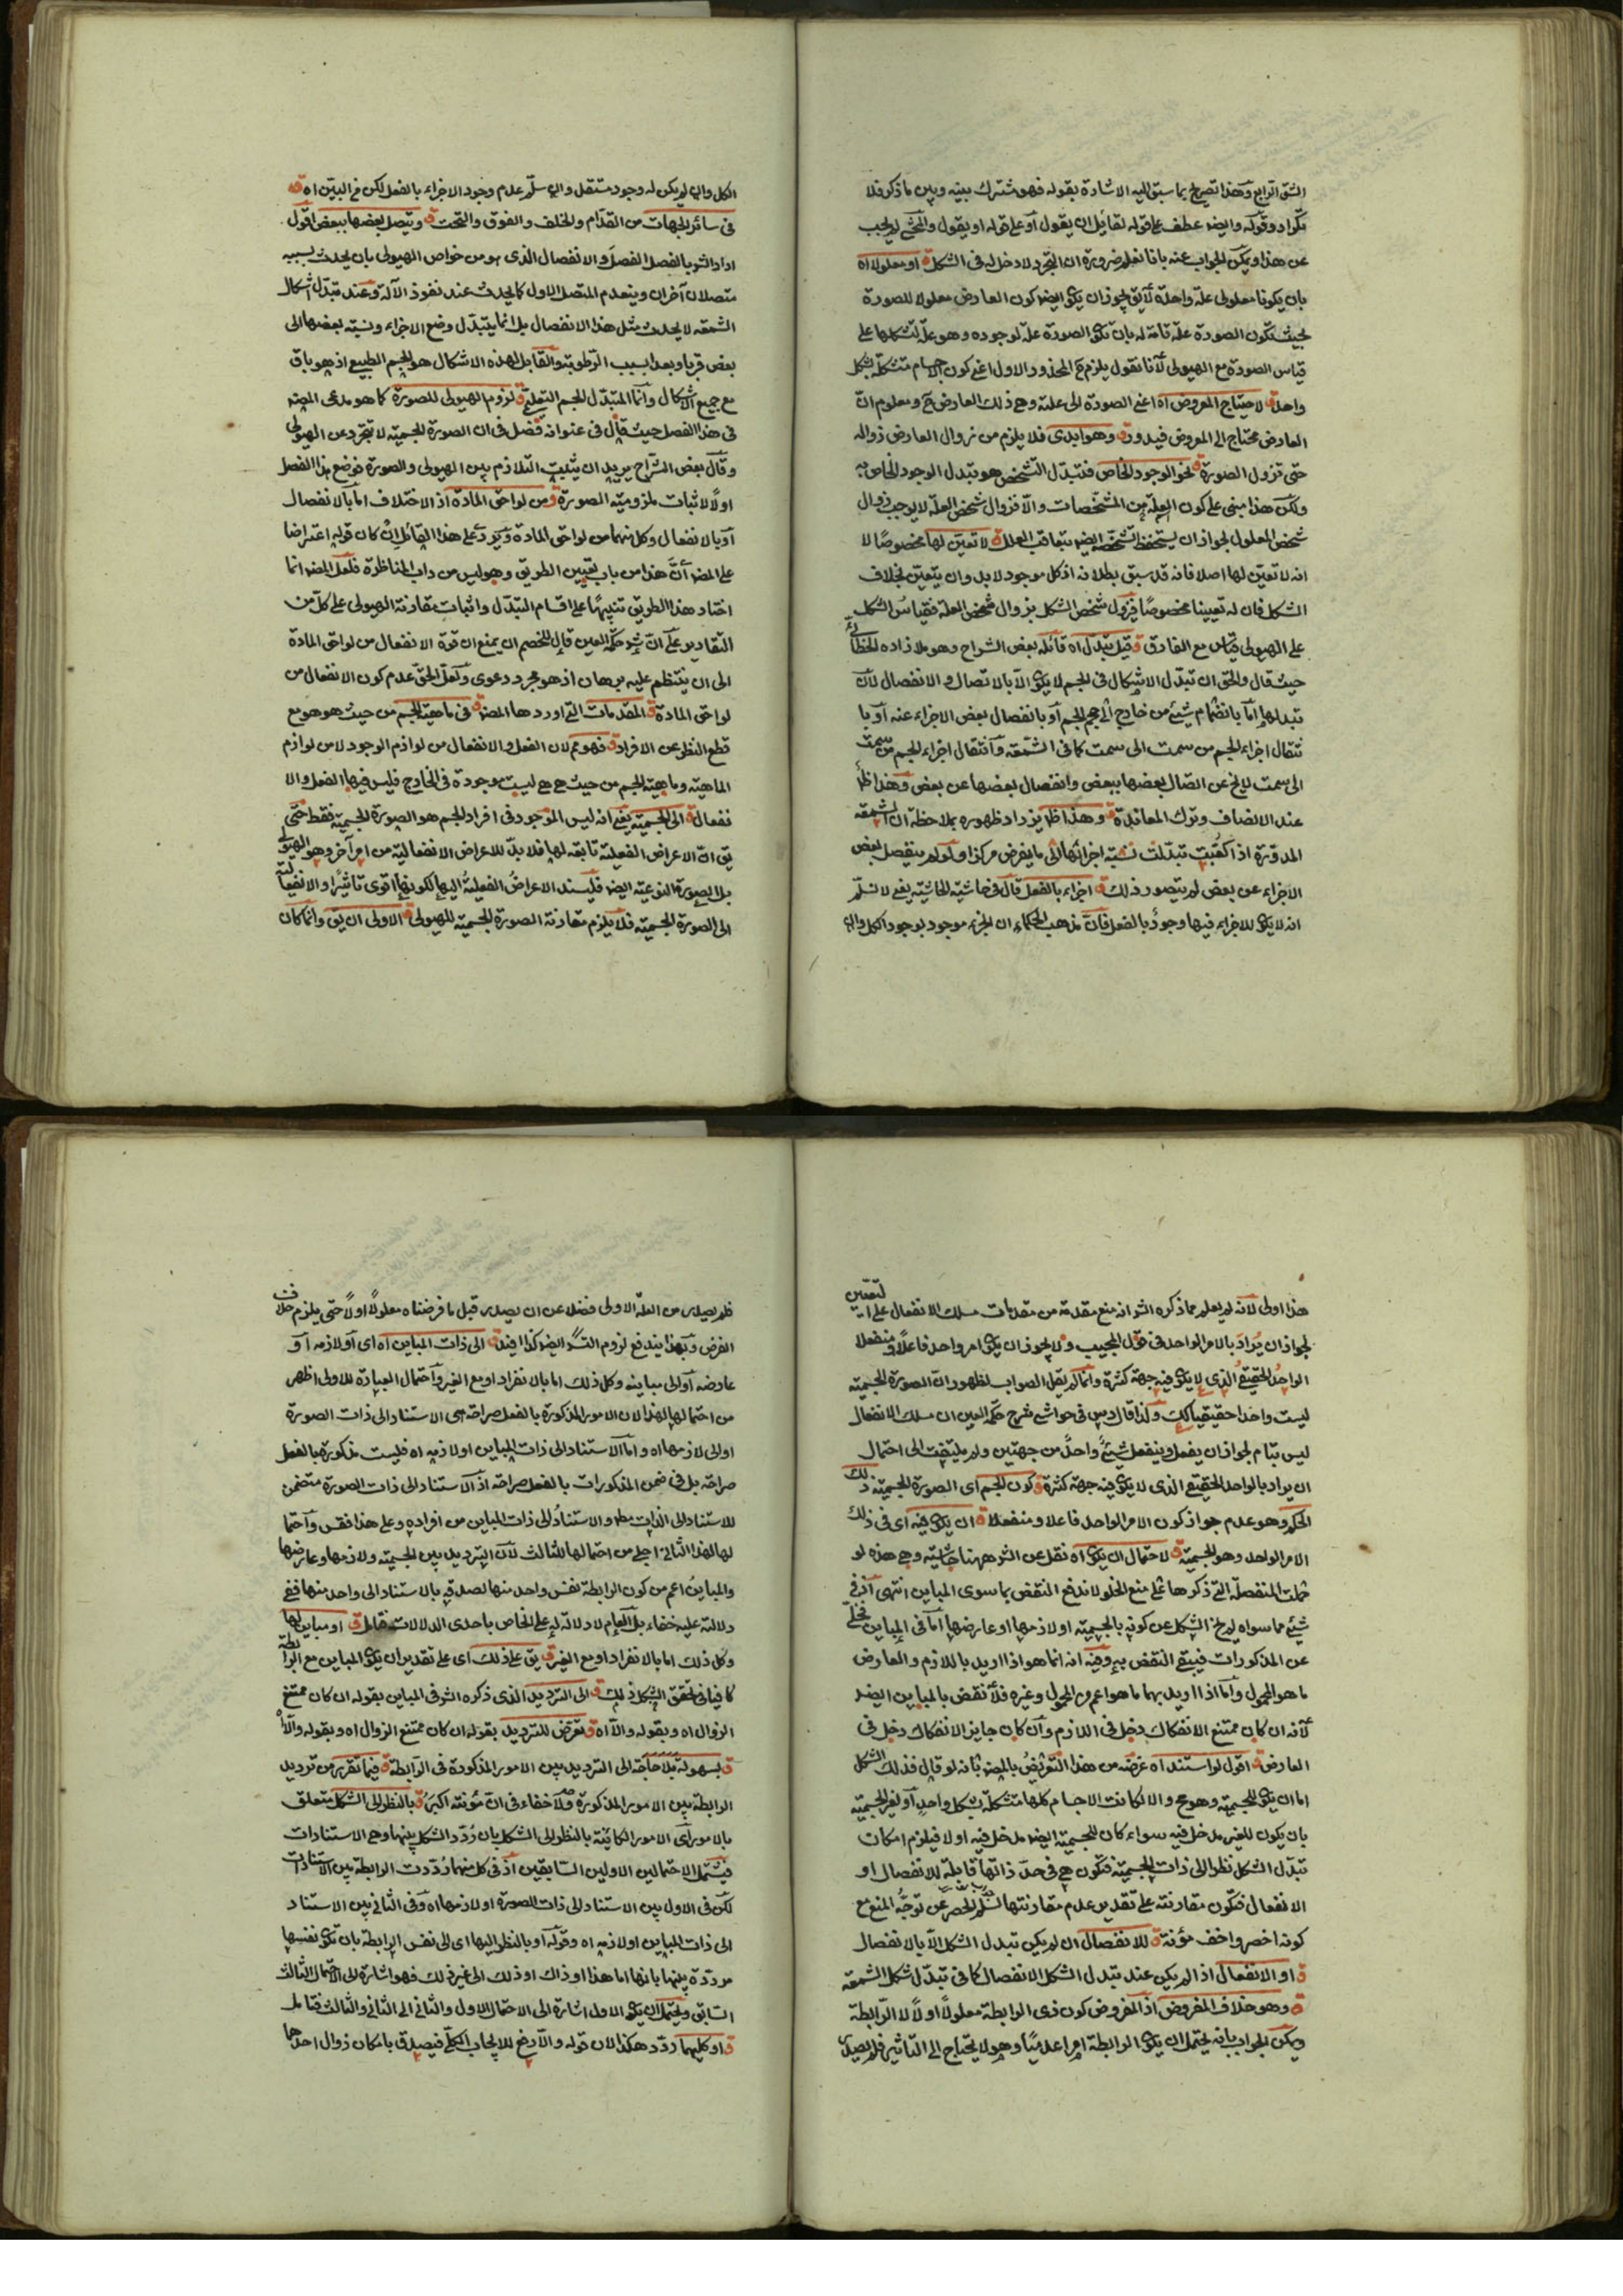 الشق الرابع وهذا تصريح بما سبق اليه الاشارة بقوله فهو مشترك بينه وبين ما ذكر فلا
تكرار وقوله وايضا عطف على قوله لقائل ان يقول او على قوله او يقول والمحشى لم يجب
عن هذا ويمكن الجواب عنه بانا نعلم ضرورة ان التجرد لا دخل له فى الشكل ق او معلولا اه
بان يكونا معلولى علة واحدة لا يق يجوز ان يكو ايضا كون العارض معلولا للصورة
بحيث تكون الصورة علة تامة له بان تكو الصورة علة لوجوده وهو علة لتشكلها على
قياس الصورة مع الهيولى لانا نقول يلزم ح المحذور الاول اعنى كون الاجسام متشكلة بشكل
واحد ق لاحتياج المعروض اه اعنى الصورة الى علته وهى ذلك العارض ح ومعلوم ان
العارض محتاج الى المعروض فيدور ق وهو ابدى فلا يلزم من زوال العارض زواله
حتى تزول الصورة ق نحو الوجود الخاص فتبدل التشخص هو تبدل الوجود الخاص به
ولكن هذا مبنى على كون العلة من المشخصات والا فزوال شخص العلة لا يوجب زوال
شخص المعلول لجواز ان يستحفظ تشخصه ايضا بتعاقب العلل ق لا تعين لها مخصوصا لا
انه لا تعين لها اصلا فانه قد سبق بطلانه اذ كل موجود لا بد وان يتعين بخلاف
الشكل فان له تعيينا مخصوصا فيزول شخص الشكل بزوال شخص العلة فقياس الشكل
على الهيولى قياس مع الفارق ق قيل تبدل اه قائله بعض الشراح وهو ملا زاده الخطائى
حيث قال والحق ان تبدل الاشكال فى الجسم لا يكو الا بالاتصال والانفصال لان
تبدلها اما بانضمام شيئ من خارج الى حجم الجسم او بانفصال بعض الاجزاء عنه او با
نتقال اجزاء الجسم من سمت الى سمت كما فى الشمعه وانتقال اجزاء الجسم من سمت
الى سمت لا يخ عن اتصال بعضها ببعض وانفصال بعضها عن بعض وهذا ظا
عند الانصاف وترك المعاندة ق وهذا ظا يزداد ظهوره بملاحظة ان الشمعه
المدورة اذا كعبت تبدلت نسبة اجزائها الى ما يفرض مركزا ولو لم ينفصل بعض
الاجزاء عن بعض لم يتصور ذلك ق اجزاء بالفعل قال فى حاشية الحاشيه يعنى لا نسلم
انه لا يكو للاجزاء فيها وجود بالفعل فان مذهب الحكماء ان الجزء موجود بوجود الكل وان
الكل وان لم يكن له وجود مستقل وان سلم عدم وجود الاجزاء بالفعل لكن من البين اه ق
فى سائر الجهات من القدام والخلف والفوق والتحت ق ويتصل بعضها ببعض اقول
اراد الش بالفصل الفصل والانفصال الذى هو من خواص الهيولى بان يحدث بسببه
متصلان آخران وينعدم المتصل الاول كما يحدث عند نفوذ الآلة وعند تبدل اشكال
الشمعه لا يحدث مثل هذا الانفصال بل انما يتبدل وضع الاجزاء ونسبة بعضها الى
بعض قربا وبعدا بسبب الرطوبة والقابل لهذه الاشكال هو الجسم الطبيعى اذ هو باق
مع جميع الاشكال وانما المتبدل الجسم التعليمى ق لزوم الهيولى للصورة كما هو مدعى المص
فى هذا الفصل حيث قال فى عنوانه فصل فى ان الصورة الجسمية لا تتجرد عن الهيولى
وقال بعض الشراح يريد ان يثبت التلازم بين الهيولى والصورة فوضع هذا الفصل
اولا لاثبات ملزومية الصورة ق من لواحق المادة اذ الاختلاف اما بالانفصال
او بالانفعال وكل منهما من لواحق المادة ويرد على هذا القائل ان كان قوله اعتراضا
على المص ان هذا من باب تعيين الطريق وهو ليس من داب المناظرة فلعل المص انما
اختار هذا الطريق تنبيها على اقسام التبدل واثبات مقارنة الهيولى على كل من
التقادير على ان ش حكمة العين قال للخصم ان يمنع ان قوة الانفعال من لواحق المادة
الى ان ينتظم عليه برهان اذ هو مجرد دعوى ولعل الحق عدم كون الانفعال من
لواحق المادة ق المقدمات التى اوردها المص ق فى ماهية الجسم من حيث هو هو مع
قطع النظر عن الافراد ق فهو مم لان الفعل والانفعال من لوازم الوجود لا من لوازم
الماهية وماهية الجسم من حيث هى هى ليست موجودة فى الخارج فليس فيها الفعل والا
نفعال ق الى الجسمية يعنى انه ليس الموجود فى افراد الجسم هو الصورة الجسمية فقط حتى
يق ان الاعراض الفعلية تابعة لها فلا بد للاعراض الانفعالية من امر آخر وهو الهيولى
بل الصورة النوعية ايضا فليسند الاعراض الفعلية اليها لكونها اقوى تاثيرا والانفعالية
الى الصورة الجسمية فلا يلزم مقارنة الصورة الجسمية للهيولى ق الاولى ان يق وانما كان
هذا اولى لانه لم يعلم مما ذكره الش انه منع مقدمة من مقدمات مسلك الانفعال على التعيين
لجواز ان يراد بالامر الواحد فى قول المجيب ولا يجوز ان يكو امر واحد فاعلا ومنفعلا
الواحد الحقيقى الذى لا يكو فيه جهة كثرة وانما لم يقل الصواب لظهور ان الصورة الجسمية
ليست واحدا حقيقيا كك ولذا قال دس فى حواشى شرح حكمة العين ان مسلك الانفعال
ليس بتام لجواز ان يفعل وينفعل شيئ واحد من جهتين ولم يلتفت الى احتمال
ان يراد بالواحد الحقيقى الذى لا يكو فيه جهة كثرة ق كون الجسم اى الصورة الجسمية ذلك
الحكم وهو عدم جواز كون الامر الواحد فاعلا ومنفعلا ق ان يكو فيه اى فى ذلك
الامر الواحد وهو الجسمية ق لاحتمال ان يكو اه نقل عن الش ههنا حاشية وهى هذه لو
حملت المنفصلة التى ذكرها على منع الخلو لاندفع النقض بما سوى المباين انتهى اذ فى
شيئ مما سواه لم يخ الشكل عن كونه بالجسمية او لازمها او عارضها اما فى المباين فيخلى
عن المذكورات فيبقى النقض به وفيه انه انما هو اذا اريد باللازم والعارض
ما هو المحمول واما اذا اريد بهما ما هو اعم من المحمول وغيره فلا نقض بالمباين ايضا
لانه ان كان ممتنع الانفكاك دخل فى اللازم وان كان جايز الانفكاك دخل فى
العارض ق اقول لو استند اه غرضه من هذا التعريض بالمص بانه لو قال فذلك الشكل
اما ان يكو للجسمية وهو مح والا لكانت الاجسام كلها متشكلة بشكل واحد او لغير الجسمية
بان يكون للغير مدخل فيه سواء كان للجسمية ايضا مدخل فيه او لا فيلزم امكان
تبدل الشكل نظرا الى ذات الجسمية فتكون هى فى حد ذاتها قابلة للانفصال او
الانفعال فتكون مقارنة على تقدير عدم مقارنتها لسلم الحصر عن توجه المنع مع
كونه اخصر واخف مؤنة ق للانفصال ان لم يكن تبدل الشكل الا بالانفصال
ق او الانفعال اذا لم يكن عند تبدل الشكل الانفصال كما فى تبدل شكل الشمعه
ق وهو خلاف المفروض اذ المفروض كون ذى الرابطة معلولا اولا لا الرابطة
ويمكن الجواب بانه يحتمل ان يكو الرابطة امرا عدميا وهو لا يحتاج الى التاثير فلم يصدر
فلم يصدر من العلة الاولى فضلا عن ان يصدر قبل ما فرضناه معلولا اولا حتى يلزم خلاف
الفرض وبهذا يندفع لزوم التس ايضا كذا افيد ق الى ذات المباين اه اى او لازمه او
عارضه او الى مباينه وكل ذلك اما بالانفراد او مع الغير واحتمال العبارة للاولى اظهر
من احتمالها لهذا لان الامور المذكورة بالفعل صراحة هى الاستناد الى ذات الصورة
او الى لازمها اه واما الاستناد الى ذات المباين او لازمه اه فليست مذكورة بالفعل
صراحة بل فى ضمن المذكورات بالفعل صراحة اذ الاستناد الى ذات الصورة متضمن
للاستناد الى الذات مط والاستناد الى ذات المباين من افراده وعلى هذا فقس واحتما
لها لهذا الثانى اجلى من احتمالها للثالث لان الترديد بين الجسمية ولازمها وعارضها
والمباين اعم من كون الرابطة نفس واحد منها لصدقه بالاستناد الى واحد منها ففى
دلالته عليه خفاء بل العام لا دلالة له على الخاص باحدى الدلالات فتامل ق او مباين لها
وكل ذلك اما بالانفراد او مع الغير ق يق على ذلك اى على تقدير ان يكو المباين مع الرابطة
كافيا فى تحقق الشكل ذلك ق الى الترديد الذى ذكره الش فى المباين بقوله ان كان ممتنع
الزوال اه وبقوله والا اه ق تعرض للترديد بقوله ان كان ممتنع الزوال اه وبقوله والا اه
ق بسهولة بلا حاجة الى الترديد بين الامور المذكورة فى الرابطة ق فيما تقرر من ترديد
الرابطة بين الامور المذكورة ولا خفاء فى ان مؤنته اكبر ق بالنظر الى الشكل متعلق
بالامور اى الامور الكائنة بالنظر الى الشكل بان ردد الشكل بينها وهى الاستنادات
فيشمل الاحتمالين الاولين السابقين اذ فى كل منهما رددت الرابطة بين الاستنادات
لكن فى الاول بين الاستناد الى ذات الصورة او لازمها اه وفى الثانى بين الاستناد
الى ذات المباين او لازمه اه وقوله او بالنظر اليها اى الى نفس الرابطة بان تكو نفسها
مرددة بينها بانها اما هذا او ذاك او ذلك الى غير ذلك فهو اشارة الى الاحتمال الثالث
السابق ويحتمل ان يكو الاول اشارة الى الاحتمال الاول والثانى الى الثانى والثالث فتامل
ق او كليهما ردد هكذا لان قوله والا رفع للايجاب الكلى فيصدق بامكان زوال احدهما